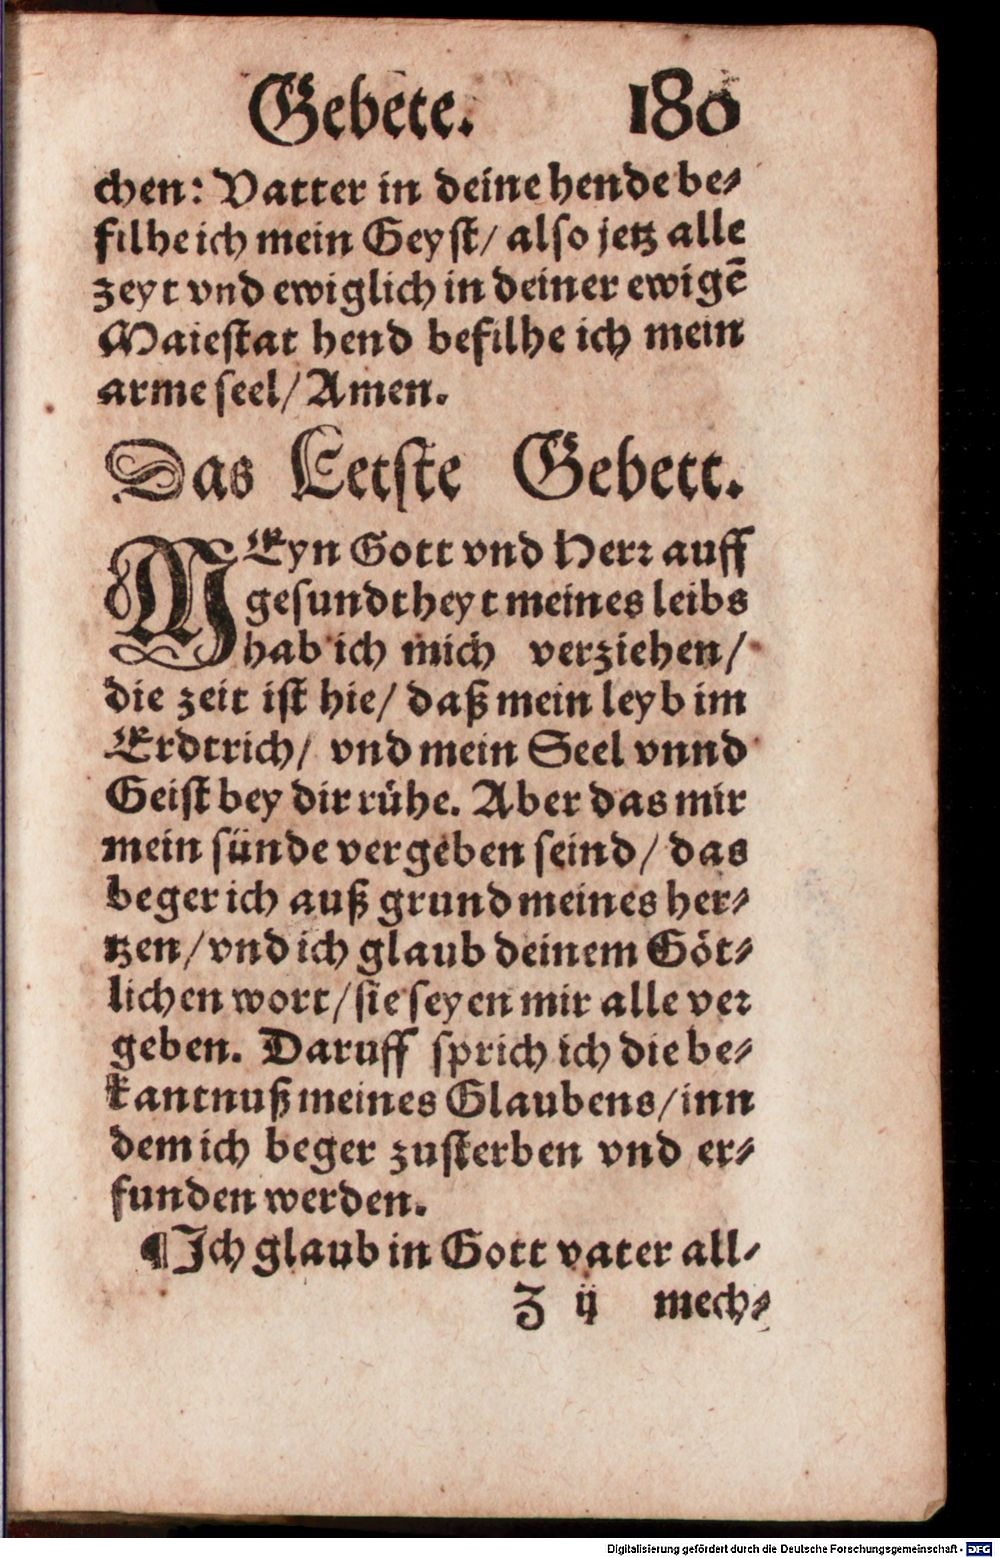 Gebete. 180
chen: Vatter in deine hende be⸗
filhe ich mein Geyst/ also jetz alle
zeyt vnd ewiglich in deiner ewigẽ
Maiestat hend befilhe ich mein
arme seel/ Amen.
Das Letste Gebett.
MEyn Gott vnd Herr auff
gesundtheyt meines leibs
hab ich mich verziehen/
die zeit ist hie/ daß mein leyb im
Erdtrich/ vnd mein Seel vnnd
Geist bey dir rühe. Aber das mir
mein sünde vergeben seind/ das
beger ich auß grund meines her⸗
tzen/ vnd ich glaub deinem Göt⸗
lichen wort/ sie seyen mir alle ver
geben. Daruff sprich ich die be⸗
kantnuß meines Glaubens/ inn
dem ich beger zusterben vnd er⸗
funden werden.
¶ Ich glaub in Gott vater all⸗
Z ij mech⸗
Digitalisierung gefördert durch die Deutsche Forschungsgemeinschaft - DFG